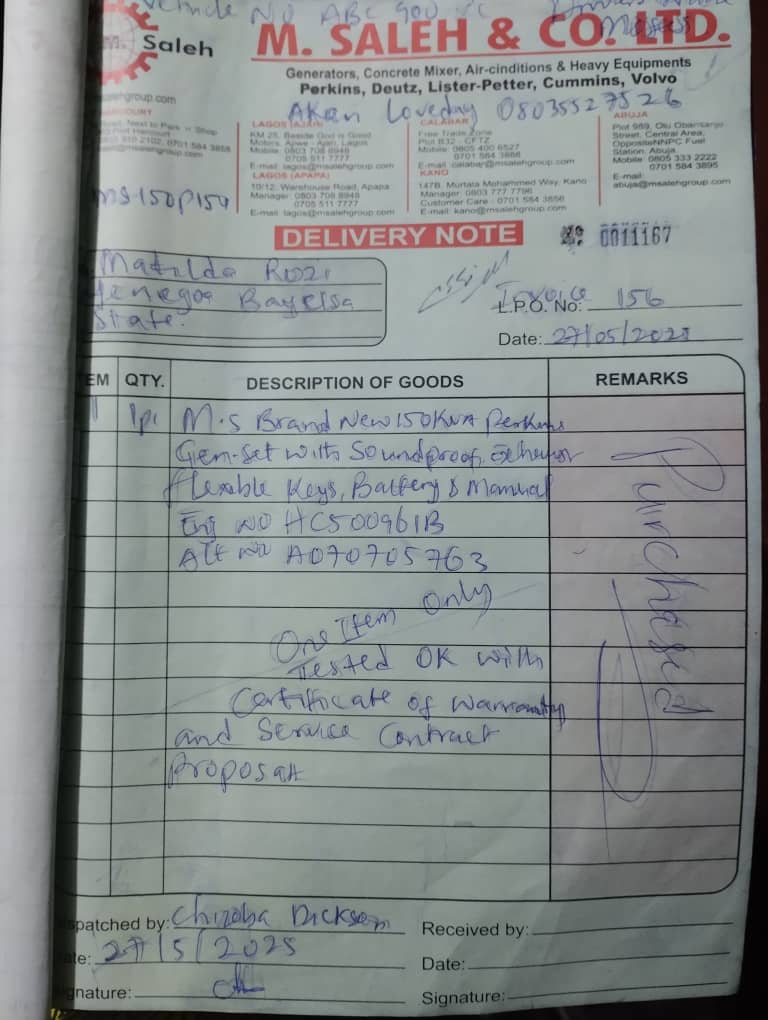 Vehicle No ABC 900
M. Saleh
M. SALEH & CO. LTD.
Generators, Concrete Mixer, Air-cinditions & Heavy Equipments
Perkins, Deutz, Lister-Petter, Cummins, Volvo
Akan Loveday 08035527526
salehgroup.com
LAGOS (AJAH)
KM 25, Beside God is Good
Motors, Ajiwe - Ajah, Lagos
Mobile: 0803 708 8948
0705 511 7777
E-mail: lagos@msalehgroup.com
LAGOS (APAPA)
10/12, Warehouse Road, Apapa
Manager: 0803 708 8948
0705 511 7777
E-mail: lagos@msalehgroup.com
CALABAR
Free Trade Zone
Plot B32 - CFTZ
Mobile: 0805 400 6527
0701 584 3868
E-mail: calabar@msalehgroup.com
KANO
147B, Murtala Mohammed Way, Kano
Manager: 0803 777 7796
Customer Care : 0701 584 3856
E-mail: kano@msalehgroup.com
ABUJA
Plot 989, Olu Obansanjo
Street, Central Area,
OppositeNNPC Fuel
Station, Abuja.
Mobile: 0805 333 2222
0701 584 3895
E-mail:
abuja@msalehgroup.com
MS-150P154
DELIVERY NOTE
0011167
Matilda Rozi
Yenegoa Bayelsa
State.
Invoice
L.P.O. No: 156
Date: 27/05/2025
EM QTY. DESCRIPTION OF GOODS REMARKS
1 1pc M.S Brand New 150KVA Perkins
Gem-set with Soundproof,
flexable Keys, Battery & Mannual
Eng NO HC500961B
Alt no A070705763
One Item Only
Tested OK with
Certificate of warranty
and Service Contract
Proposal
Purchased
spatched by: Chizoba Dickson
ate: 27/5/2025
gnature:
Received by:
Date:
Signature: